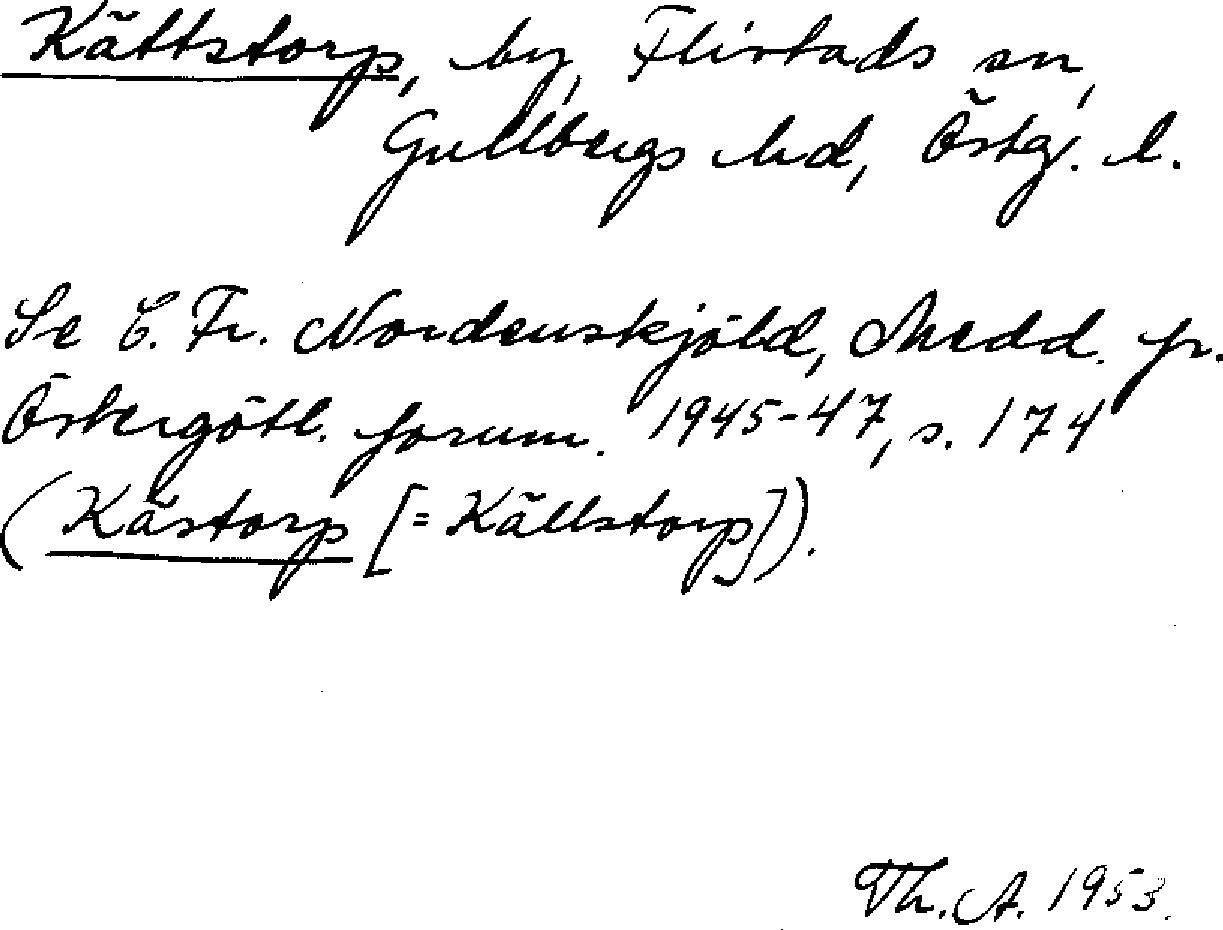 Kättstorp, by, Flistads sn,
Gullbergs hd, Östg. l.
Se C. Fr. Nordenskjöld, Medd. fr.
Östergötl. fornm. 1945-47, s. 174
(Kästorp [= Källstorp]).
Th. A. 1953.